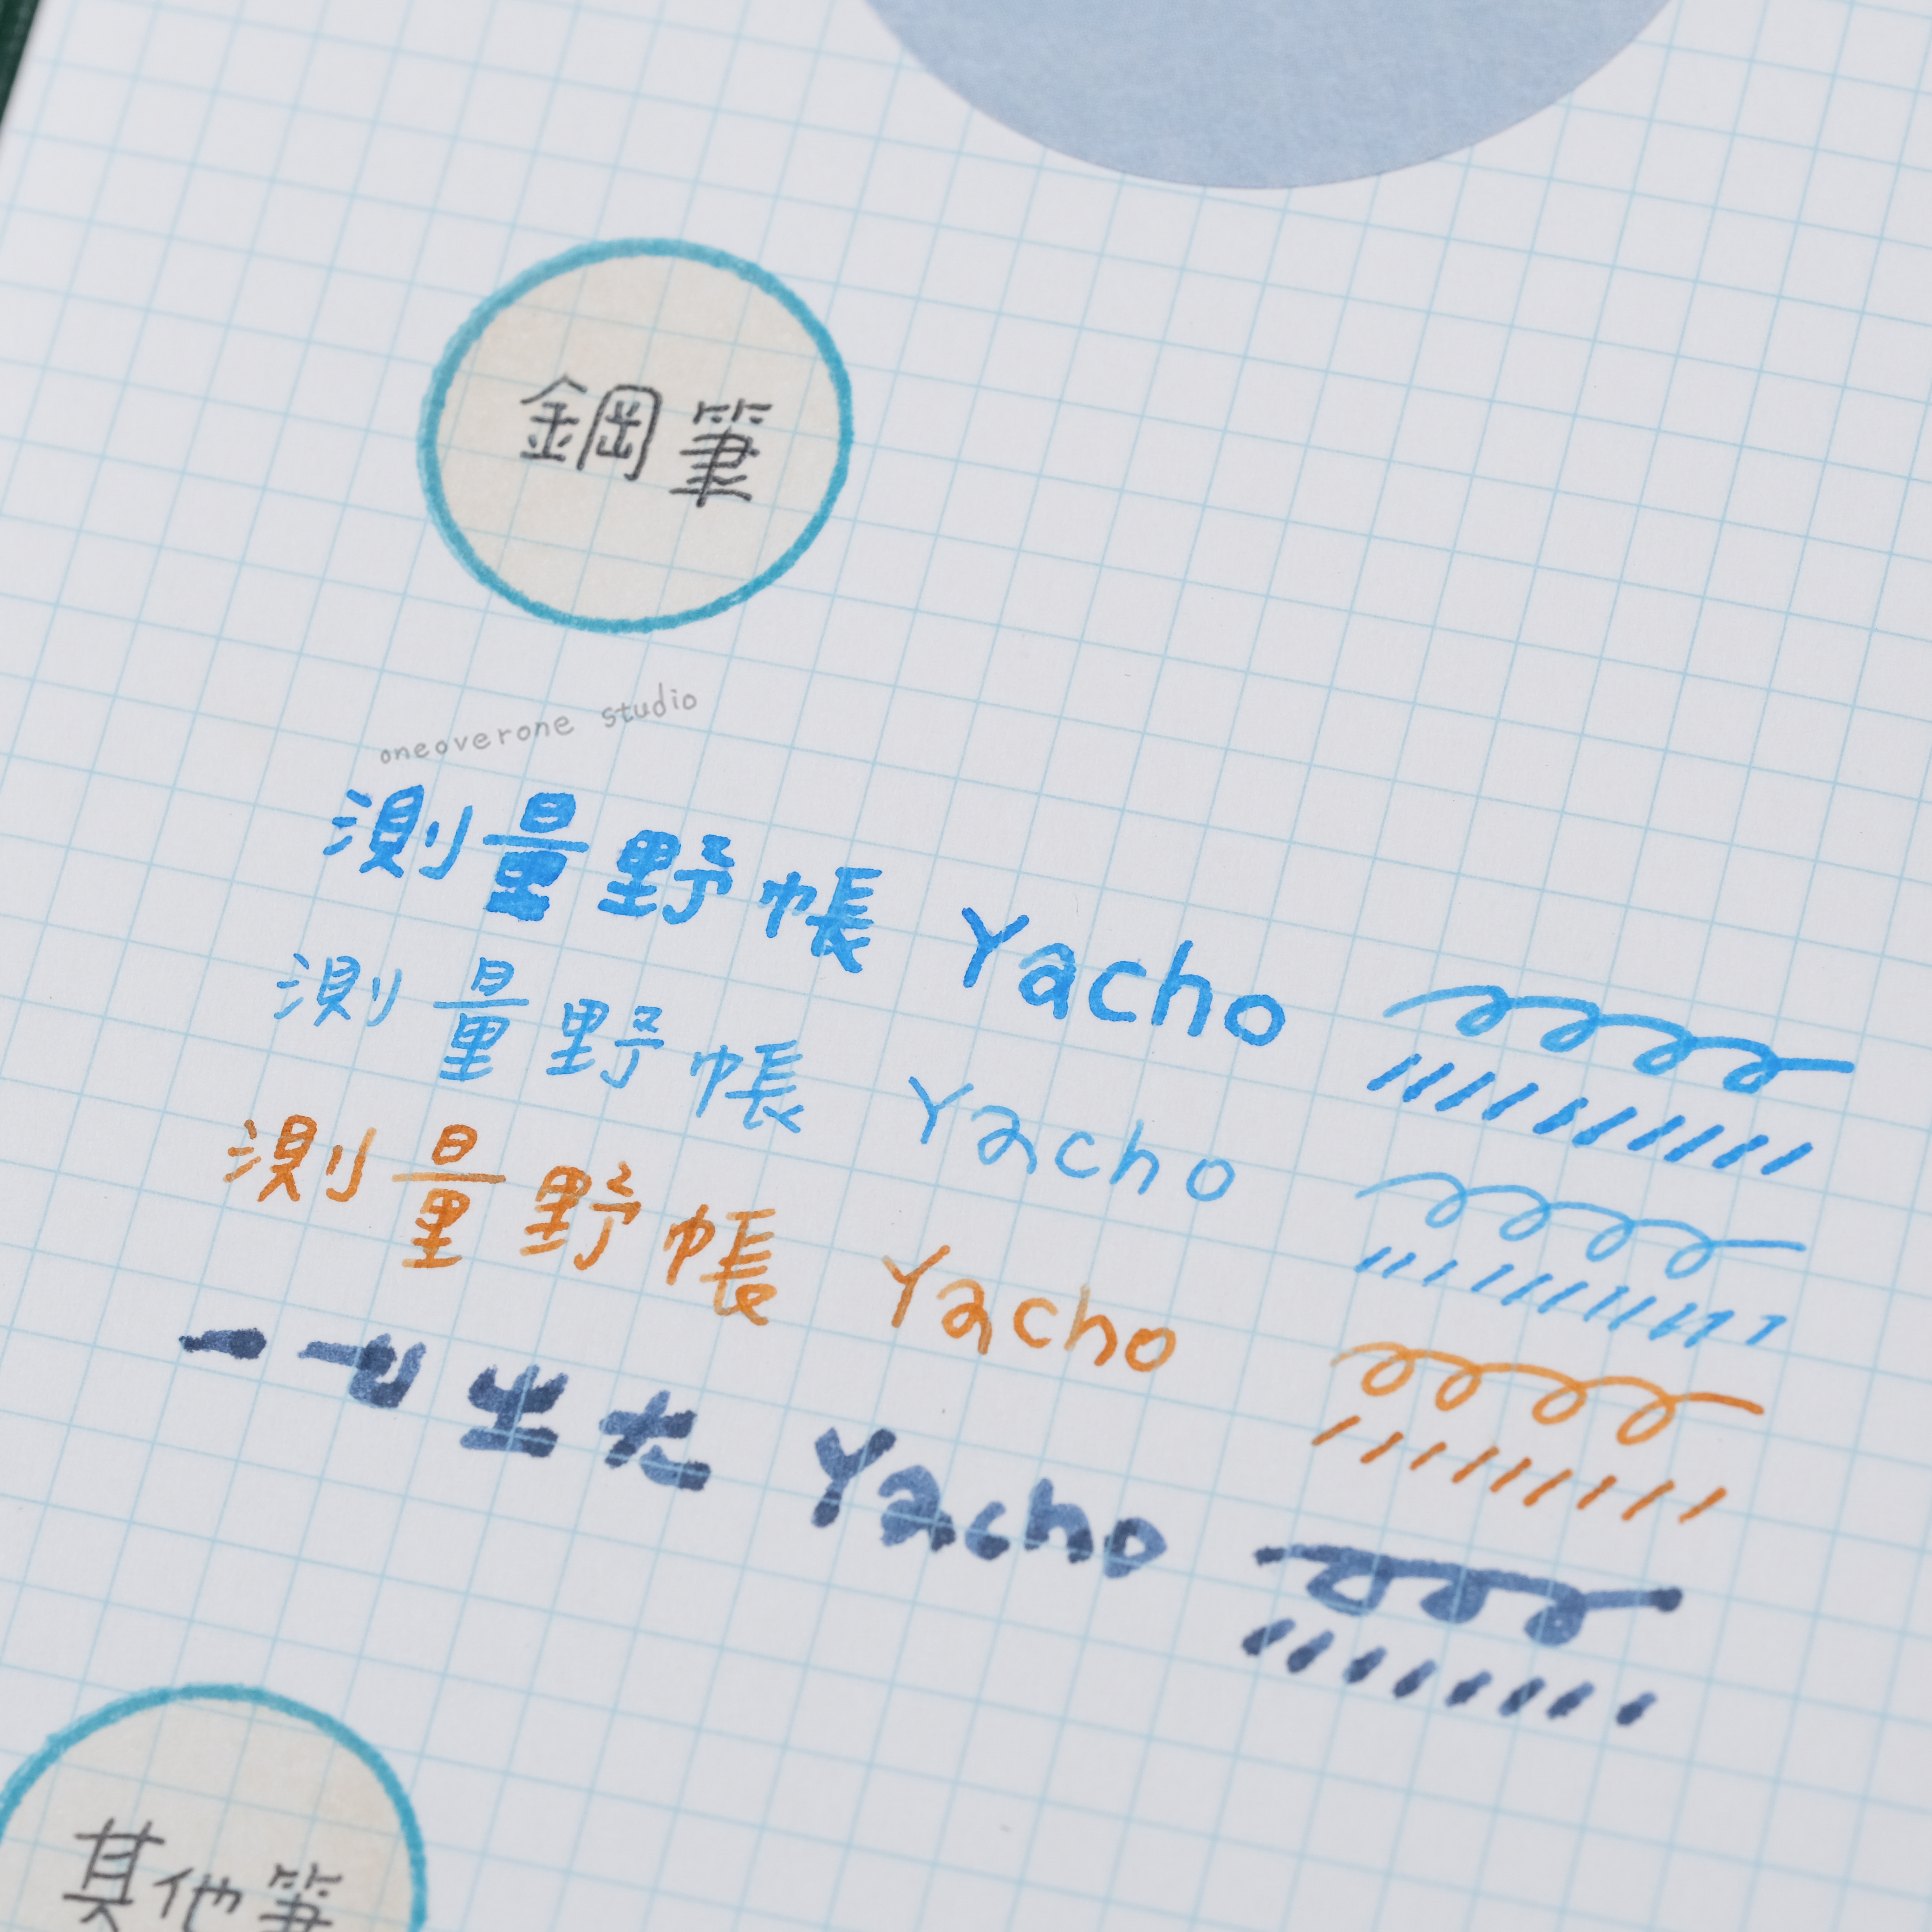 鋼筆
oneoverone studio
測量野帳 Yacho
測量野帳 Yacho
測量野帳 Yacho
一 二 Yacho
其他筆